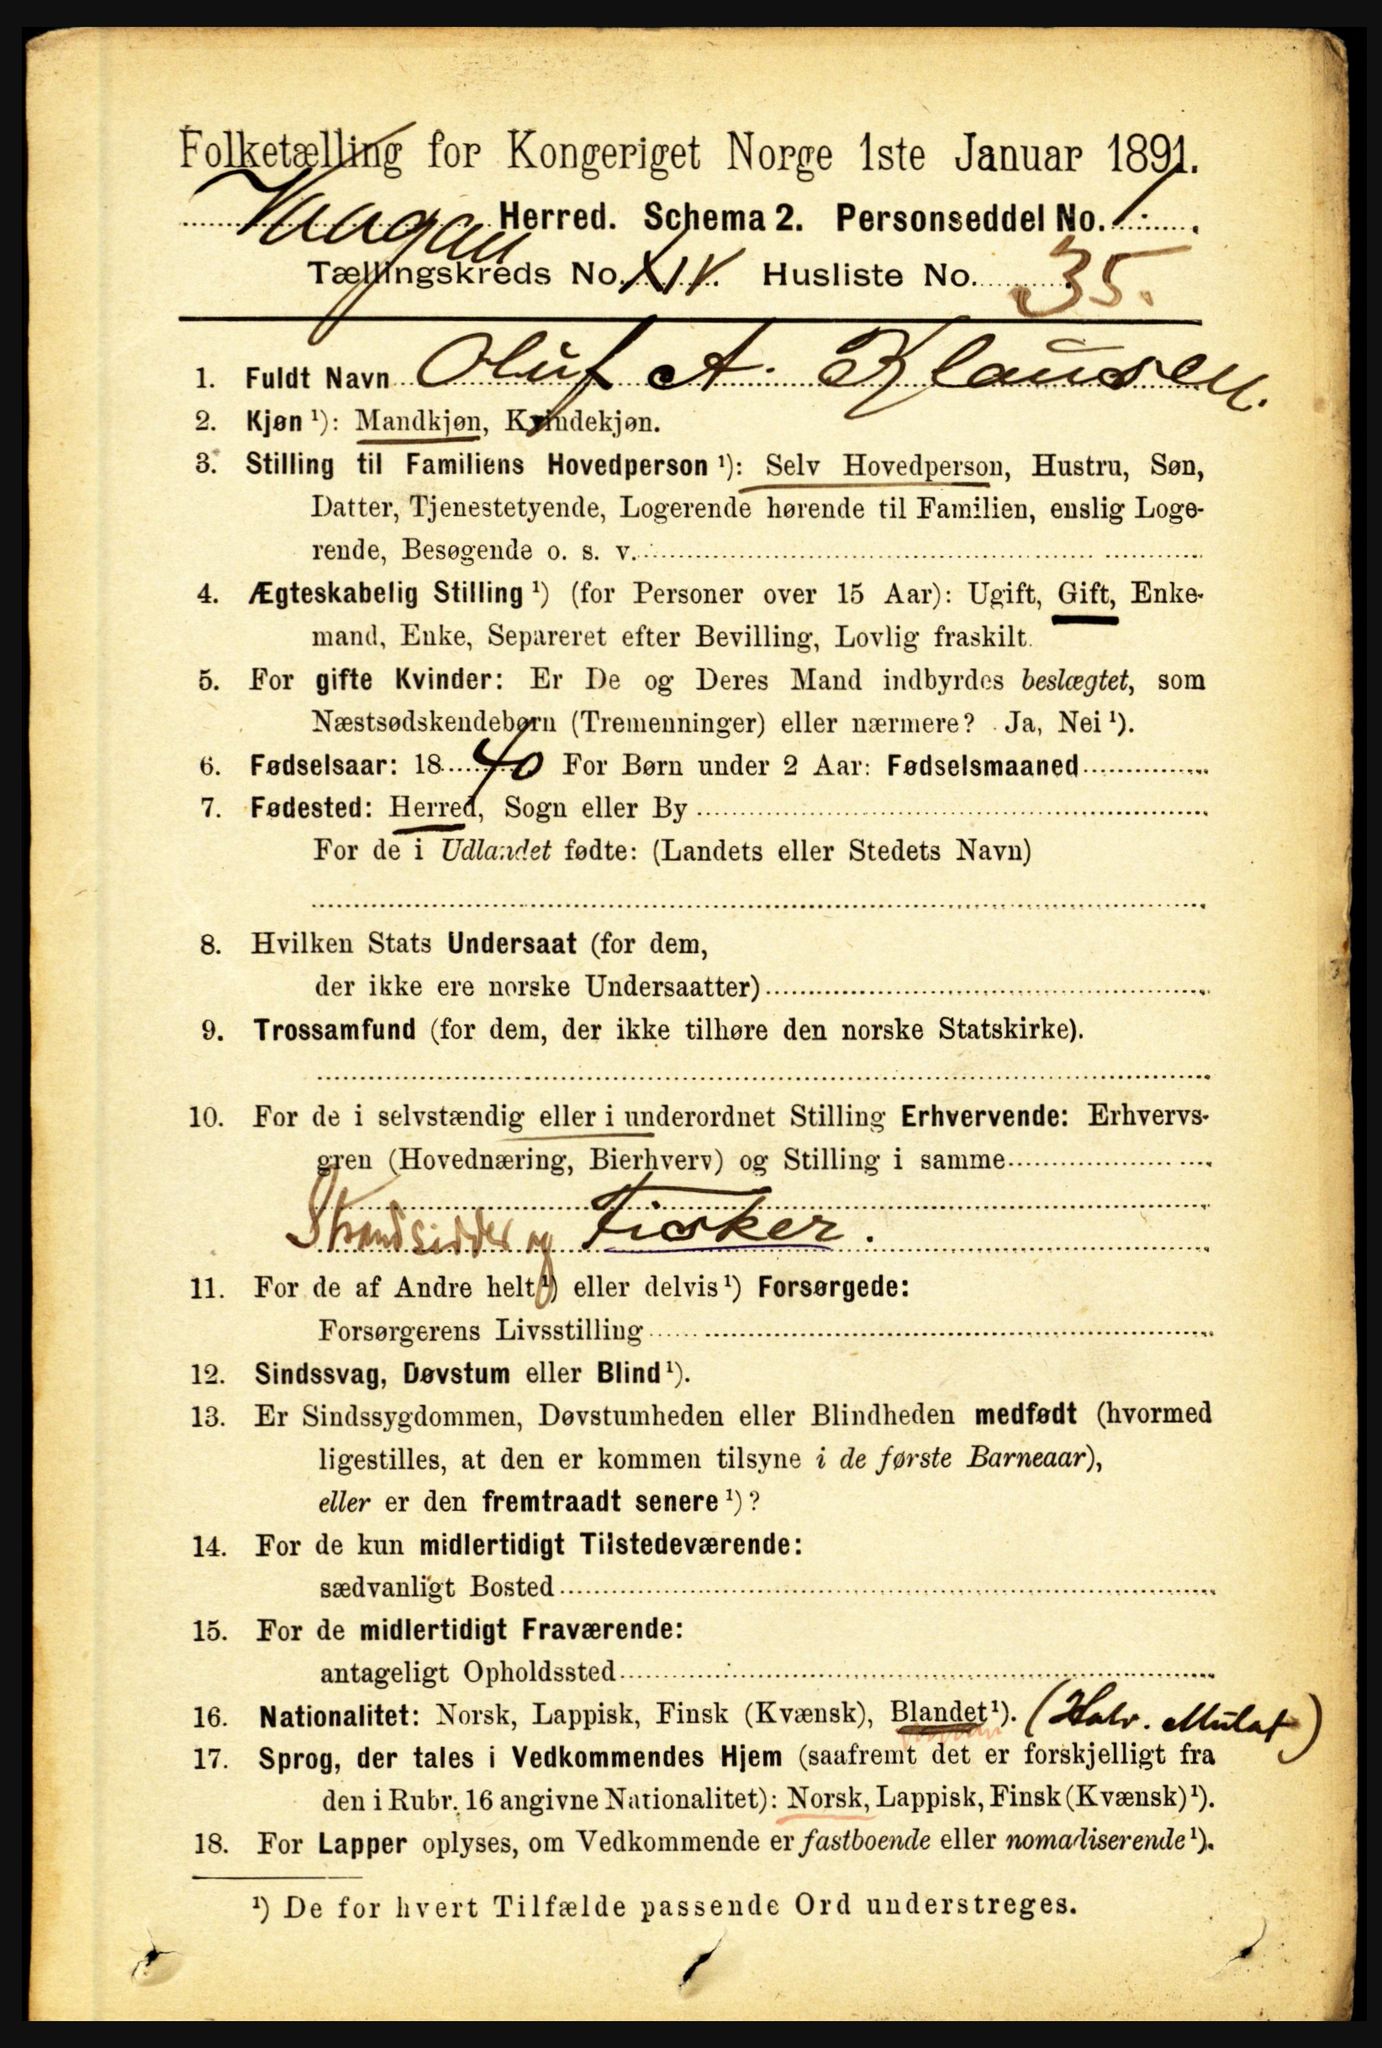 Folketælling for Kongeriget Norge 1ste Januar 1891.
Vaagan Herred. Schema 2. Personseddel No. 1.
Tællingskreds No. XIV. Husliste No. 35.
1. Fuldt Navn Oluf A. Klausen.
2. Kjøn ¹): Mandkjøn, Kvindekjøn.
3. Stilling til Familiens Hovedperson ¹): Selv Hovedperson, Hustru, Søn,
Datter, Tjenestetyende, Logerende hørende til Familien, enslig Loge-
rende, Besøgende o. s. v.
4. Ægteskabelig Stilling ¹) (for Personer over 15 Aar): Ugift, Gift, Enke-
mand, Enke, Separeret efter Bevilling, Lovlig fraskilt.
5. For gifte Kvinder: Er De og Deres Mand indbyrdes beslægtet, som
Næstsødskendebørn (Tremenninger) eller nærmere? Ja, Nei ¹).
6. Fødselsaar: 1840 For Børn under 2 Aar: Fødselsmaaned
7. Fødested: Herred, Sogn eller By
For de i Udlandet fødte: (Landets eller Stedets Navn)
8. Hvilken Stats Undersaat (for dem,
der ikke ere norske Undersaatter)
9. Trossamfund (for dem, der ikke tilhøre den norske Statskirke).
10. For de i selvstændig eller i underordnet Stilling Erhvervende: Erhvervs-
gren (Hovednæring, Bierhverv) og Stilling i samme
Strandsidder og Fisker.
11. For de af Andre helt ¹) eller delvis ¹) Forsørgede:
Forsørgerens Livsstilling
12. Sindssvag, Døvstum eller Blind ¹).
13. Er Sindssygdommen, Døvstumheden eller Blindheden medfødt (hvormed
ligestilles, at den er kommen tilsyne i de første Barneaar),
eller er den fremtraadt senere ¹)?
14. For de kun midlertidigt Tilstedeværende:
sædvanligt Bosted
15. For de midlertidigt Fraværende:
antageligt Opholdssted
16. Nationalitet: Norsk, Lappisk, Finsk (Kvænsk), Blandet ¹). (Halv. Mulat)
17. Sprog, der tales i Vedkommendes Hjem (saafremt det er forskjelligt fra
den i Rubr. 16 angivne Nationalitet): Norsk, Lappisk, Finsk (Kvænsk) ¹).
18. For Lapper oplyses, om Vedkommende er fastboende eller nomadiserende ¹).
¹) De for hvert Tilfælde passende Ord understreges.